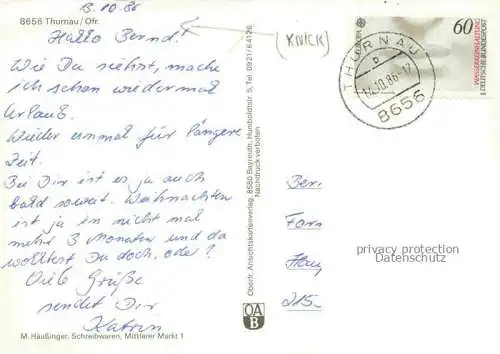 13.10.86
8656 Thurnau/Ofr.
Hallo Bernd!
Wie Du siehst, mache
ich schon wieder mal
Urlaub.
Wieder einmal für längere
Zeit.
Bei Dir ist es ja auch
bald soweit. Weihnachten
ist ja in nicht mal
mehr 3 Monaten und da
wolltest Du doch, oder?
Viele Grüße
sendet Dir
Katrin
M. Häußinger, Schreibwaren, Mittlerer Markt 1
Oberfr. Ansichtskartenverlag, 8580 Bayreuth, Humboldtstr. 5, Tel. 0921/64126
Nachdruck verboten
OA
B
(KNICK)
EUROPA
60
WASSERREINHALTUNG
DEUTSCHE BUNDESPOST
THURNAU
b
14.10.86-17
8656
privacy protection
Datenschutz